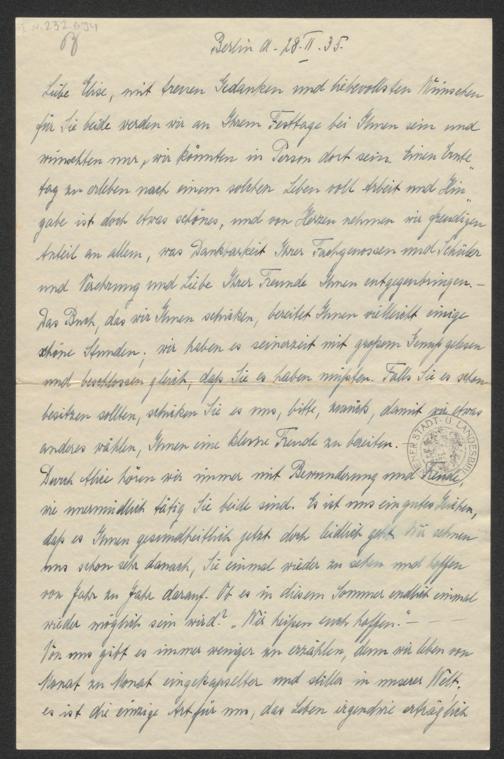 I.N. 232.694
Berlin d. 28. II. 35.
Liebe Elise, mit treuen Gedanken und liebevollsten Wünschen
für Sie beide werden wir an Ihrem Festtage bei Ihnen sein und
wünschten nur, wir könnten in Person dort sein. Einen Ernte
tag zu erleben nach einem solchen Leben voll Arbeit und Hin
gabe ist doch etwas schönes, und von Herzen nehmen wir freudigen
Anteil an allem, was Dankbarkeit Ihrer Fachgenossen und Schüler
und Verehrung und Liebe Ihrer Freunde Ihnen entgegenbringen. –
Das Buch, das wir Ihnen schicken, bereitet Ihnen vielleicht einige
schöne Stunden; wir haben es seinerzeit mit großem Genuß gelesen
und beschlossen gleich, daß Sie es haben müßten. Falls Sie es schon
besitzen sollten, schicken Sie es uns, bitte, zurück, damit wir etwas
anderes wählen, Ihnen eine kleine Freude zu bereiten. –
Durch Alice hören wir immer mit Bewunderung und Freude
wie unermüdlich tätig Sie beide sind. Es ist uns ein gutes Zeichen,
daß es Ihnen gesundheitlich jetzt doch leidlich geht. Wir sehnen
uns schon sehr danach, Sie einmal wieder zu sehen und hoffen
von Jahr zu Jahr darauf. Ob es in diesem Sommer endlich einmal
wieder möglich sein wird? „Wir heißen euch hoffen." –
Von uns gibt es immer weniger zu erzählen, denn wir leben von
Monat zu Monat eingekapselter und stiller in unserer Welt;
es ist die einzige Art für uns, das Leben irgendwie erträglich
STADT- U. LANDESBI